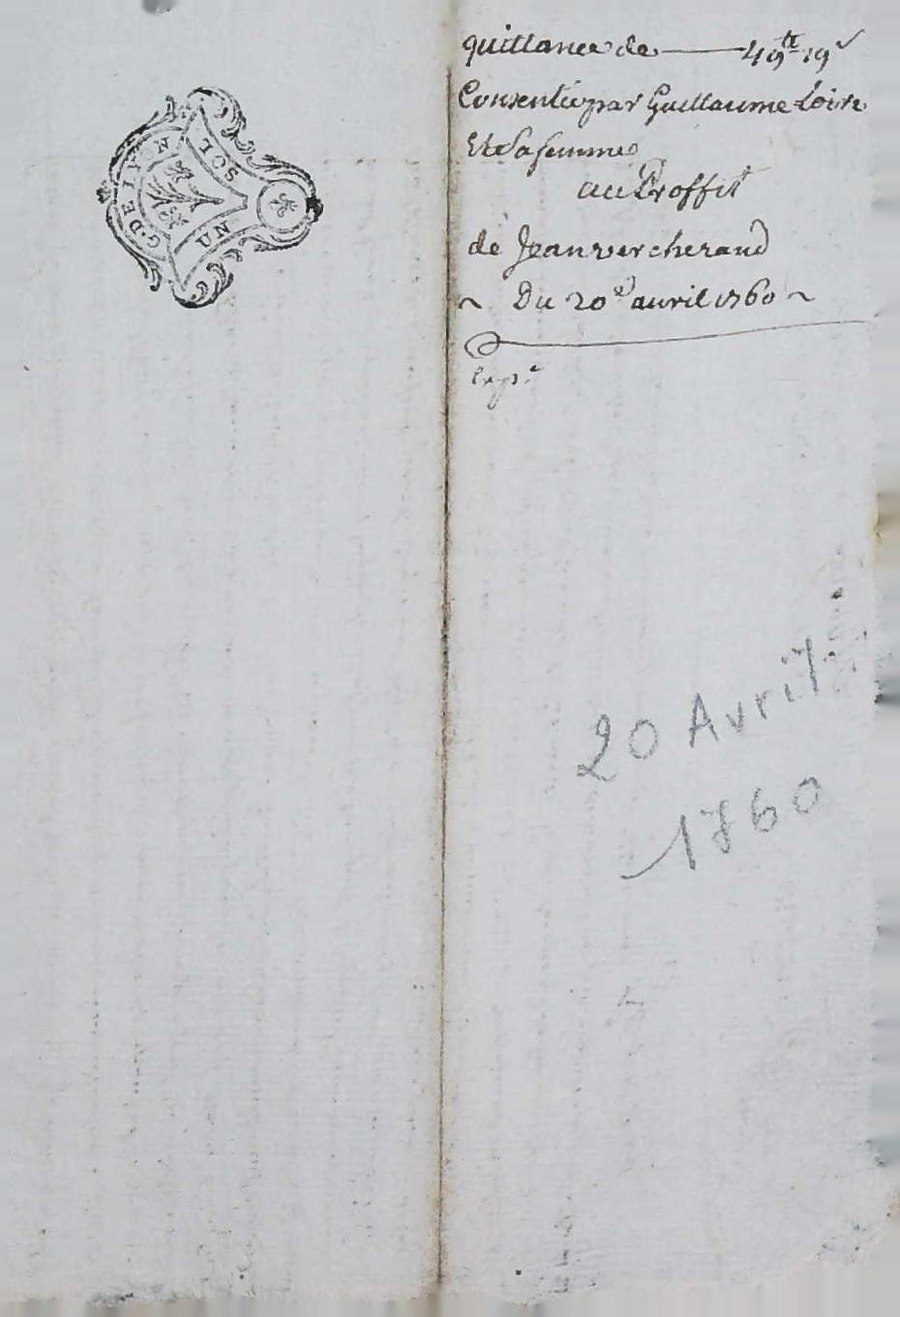 G. DE LYON
UN SOL
quittance de — 49tt 19s
Consentie par Guillaume Loire
Et Sa femme
au Proffit
de Jean vercherand
~ Du 20e avril 1760 ~
Exp.e
20 Avril
1760